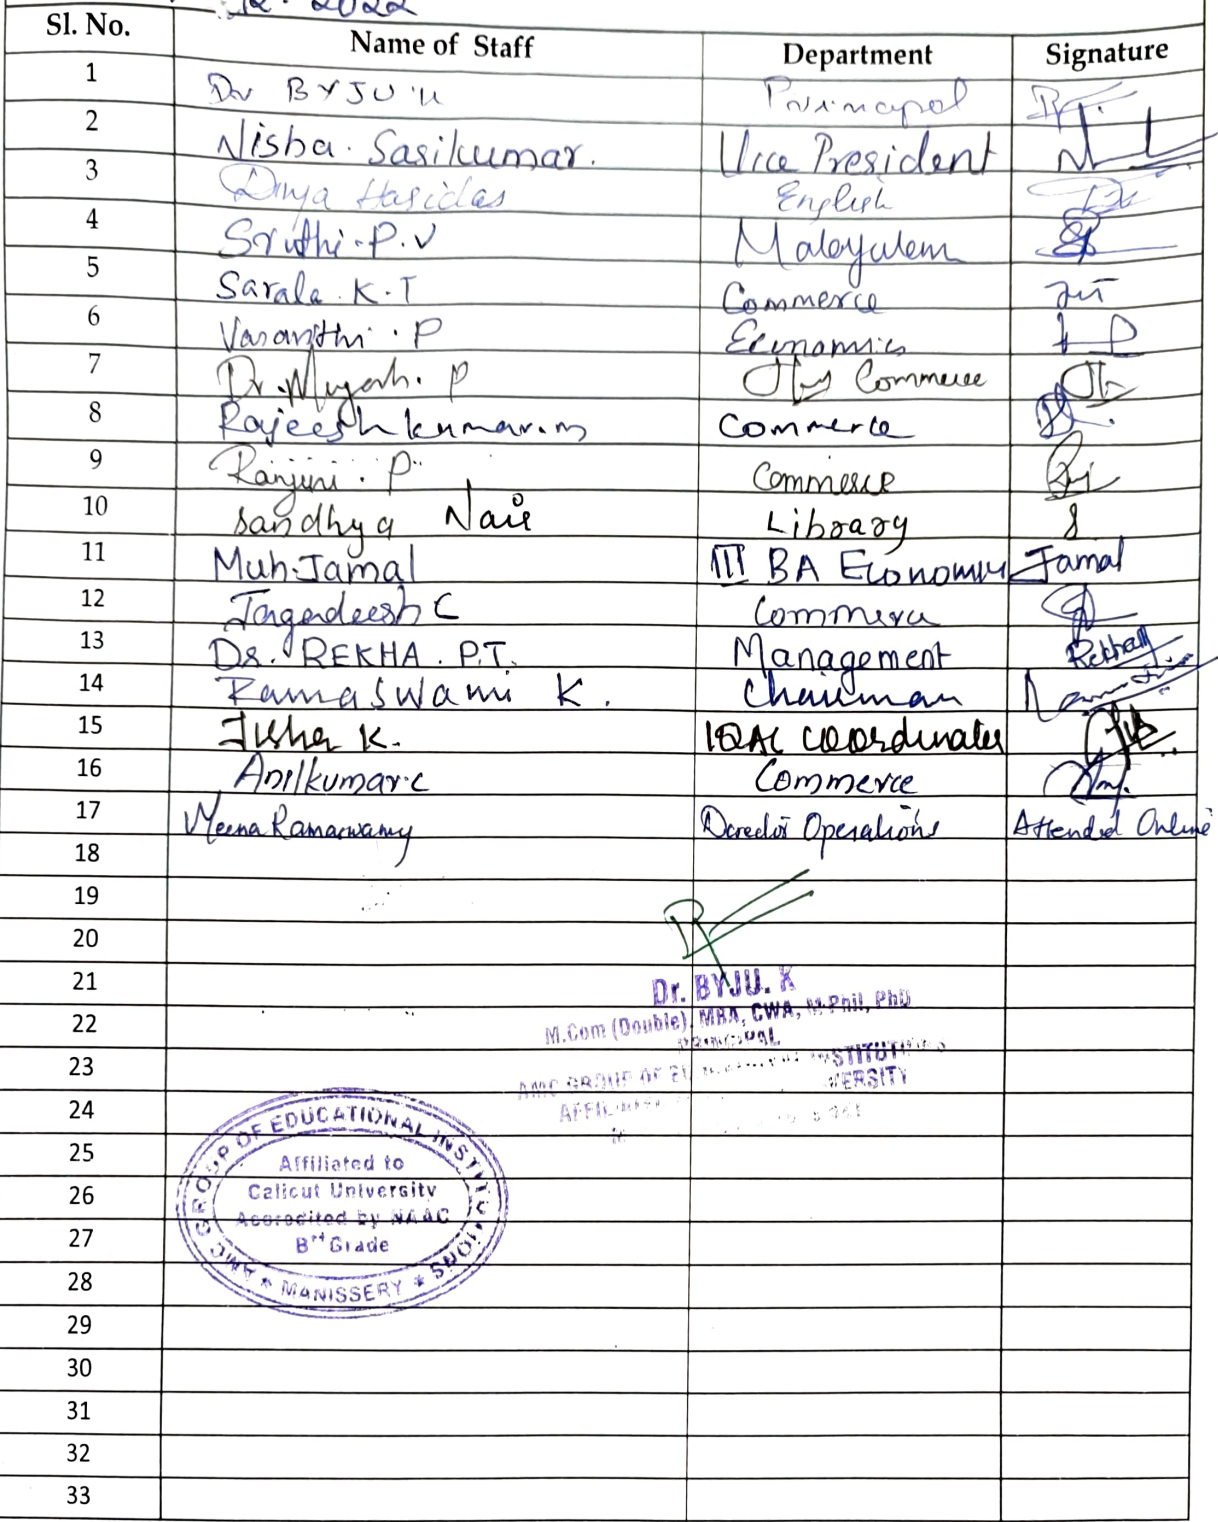 12. 2022
Sl. No. Name of Staff Department Signature
1 Dr BYJU K Principal
2 Nisha. Sasikumar. Vice President
3 Divya Haridas English
4 Sruthi. P. V Malayalam
5 Sarala. K. T Commerce
6 Vasanthi. P Economics
7 Dr. P Commerce
8 Rajeesh kumar. m Commerce
9 Ranjini. P Commerce
10 Sandhya Nair Library
11 Muh. Jamal III BA Economics Jamal
12 Jagadeesh C Commerce
13 Dr. REKHA. P.T. Management Rekha
14 Ramaswami K. Chairman
15 Jisha K. IQAC Coordinator
16 Anilkumar.c Commerce
17 Meena Ramaswamy Director Operations Attended Online
18
19
20
21
Dr. BYJU. K
22
M.Com (Double), MBA, CWA, M.Phil, PhD
PRINCIPAL
23
AMC GROUP OF INSTITUTIONS
24
AMC GROUP OF EDUCATIONAL INSTITUTIONS
25
Affiliated to
26
Calicut University
Accredited by NAAC
27
B++ Grade
28
* MANISSERY *
29
30
31
32
33